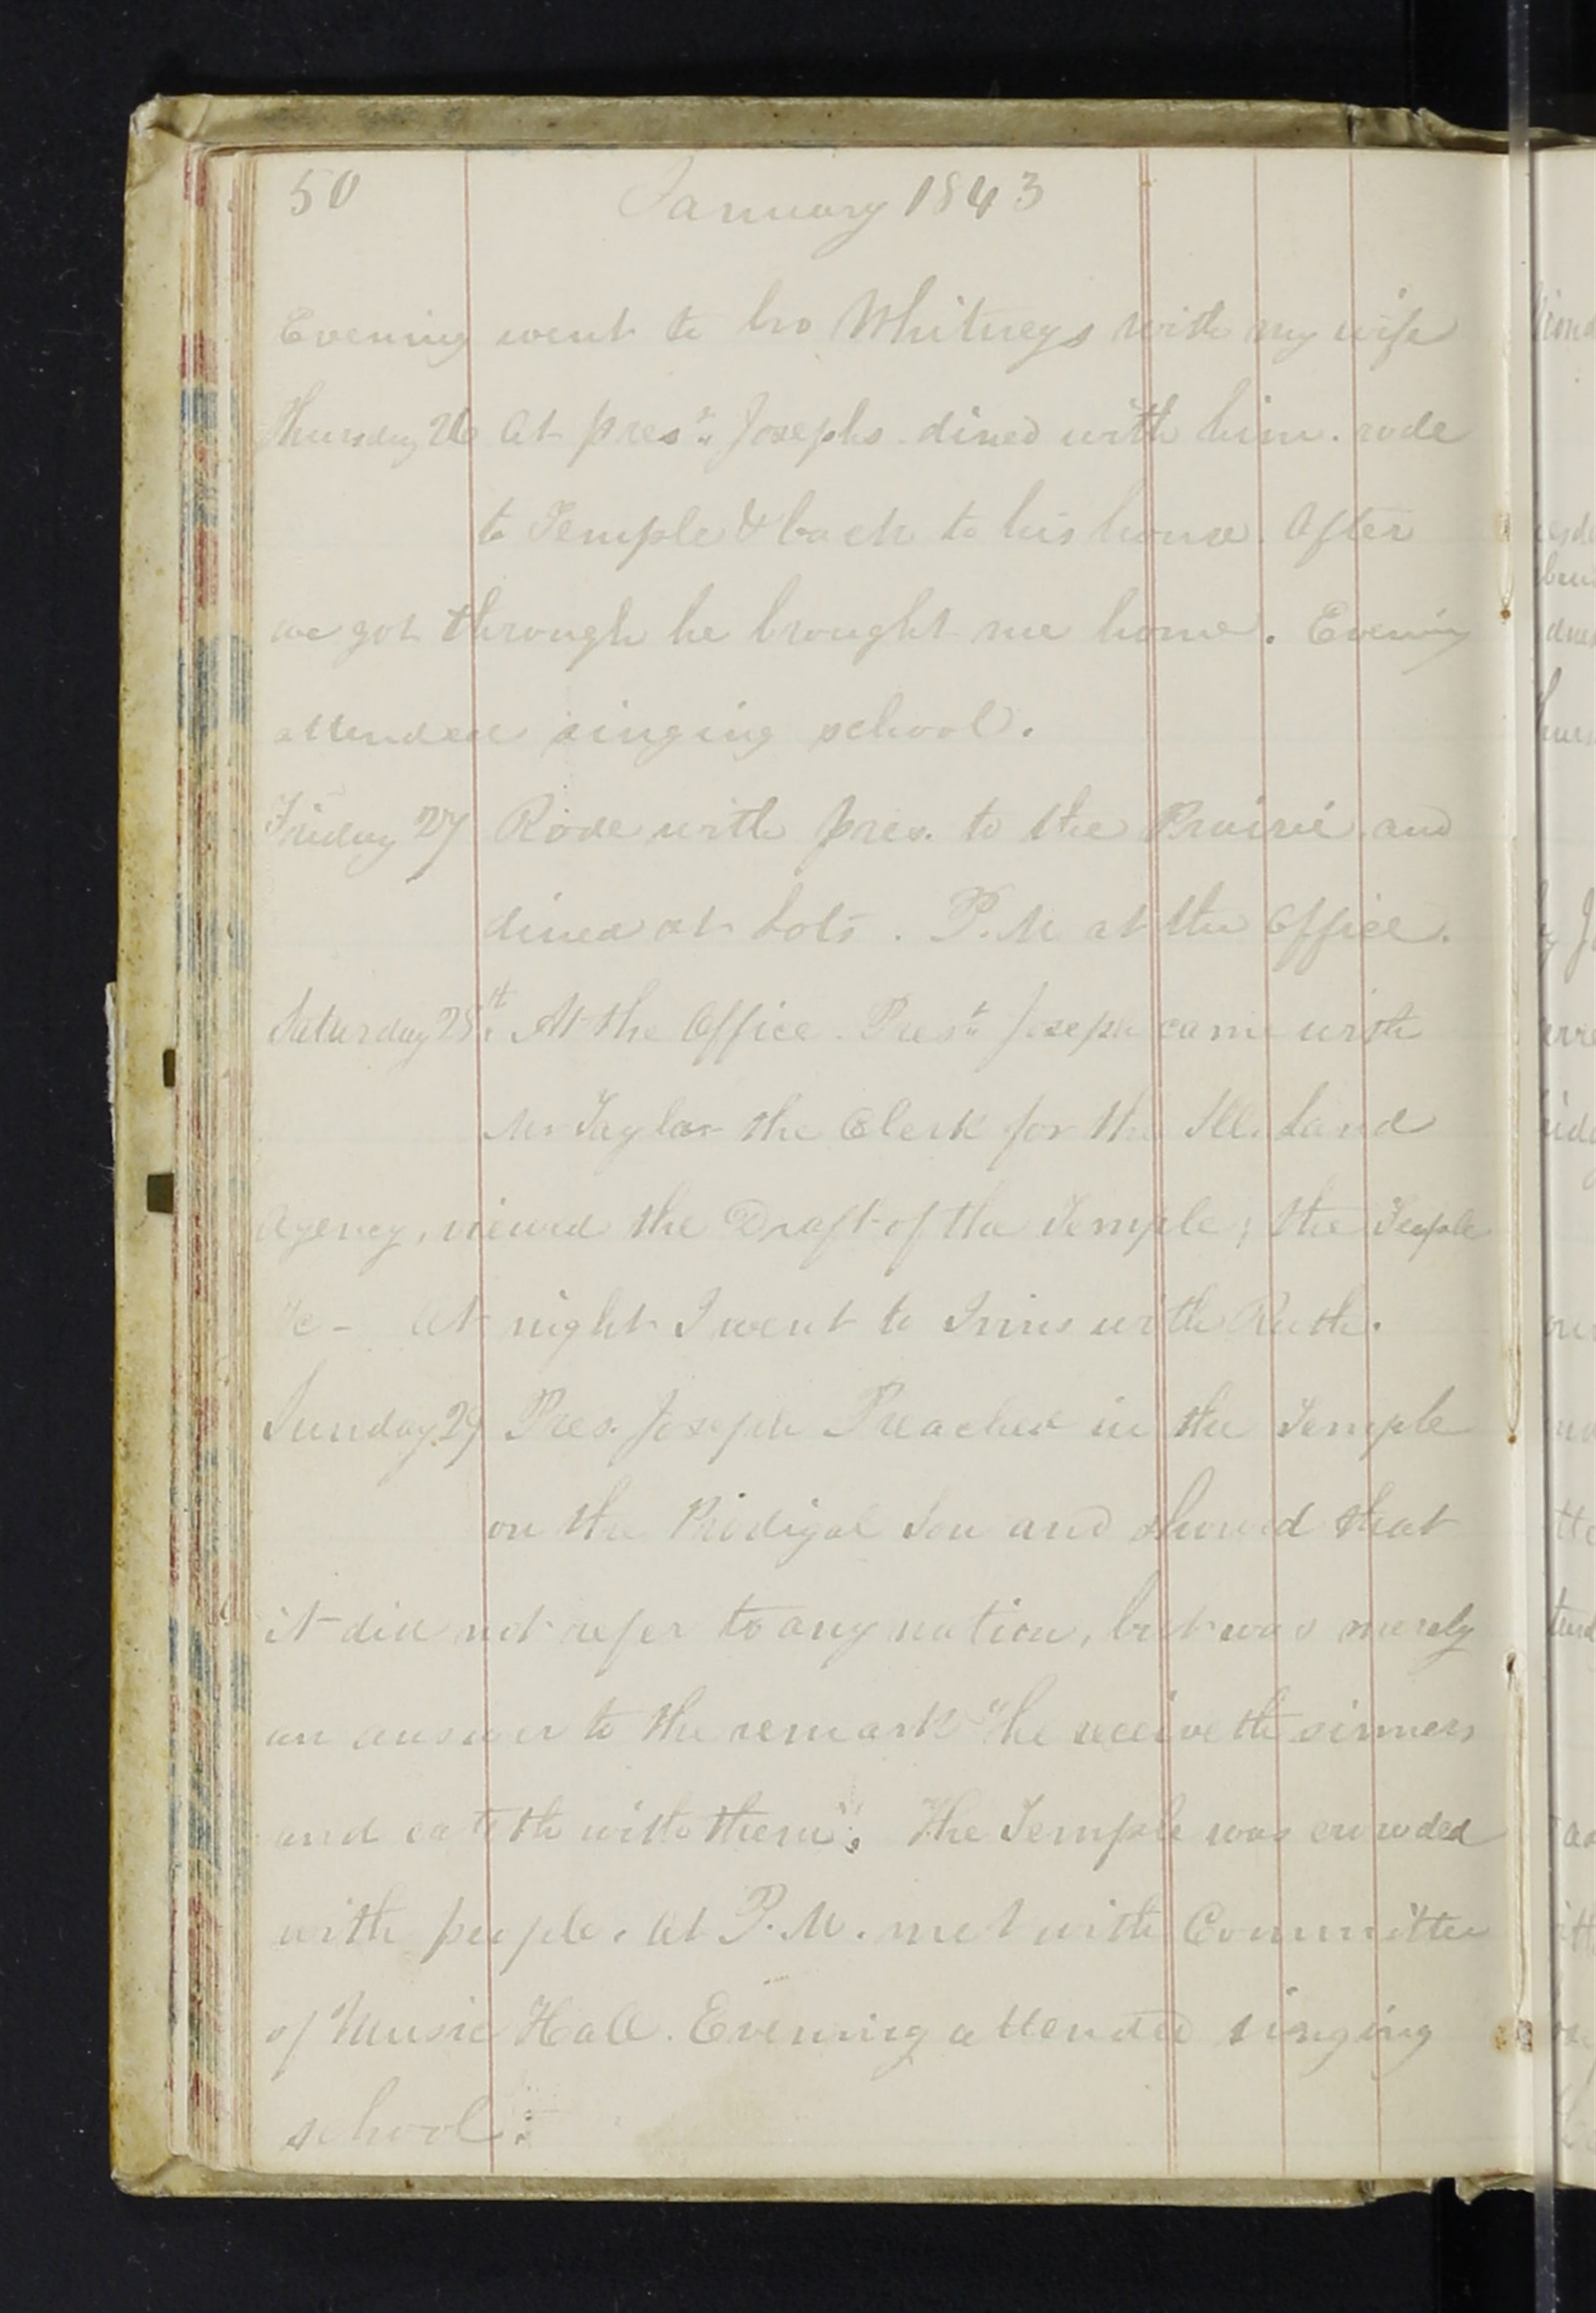 50 January 1843
Evening went to bro Whitneys with my wife
Thursday 26 At pres.t Josephs dined with him. rode
to Temple & back to his house. After
we got through he brought me home. Evening
attended singing school.
Friday 27 Rode with pres. to the Prairie and
dined at Lots. P.M at the Office.
Saturday 28th. At the Office. Pres.t Joseph came with
Mr Taylor the Clerk for the Ill. Land
Agency, viewed the Draft of the Temple; the Temple
&c - At night I went to Inins with Ruth.
Sunday 29 Pres. Joseph Preached in the Temple
on the Prodigal Son and showed that
it did not refer to any nation, but was merely
an answer to the remark "he receiveth sinners
and eateth with them". The Temple was crowded
with people. At P.M. met with Committee
of Music Hall. Evening attended singing
school.